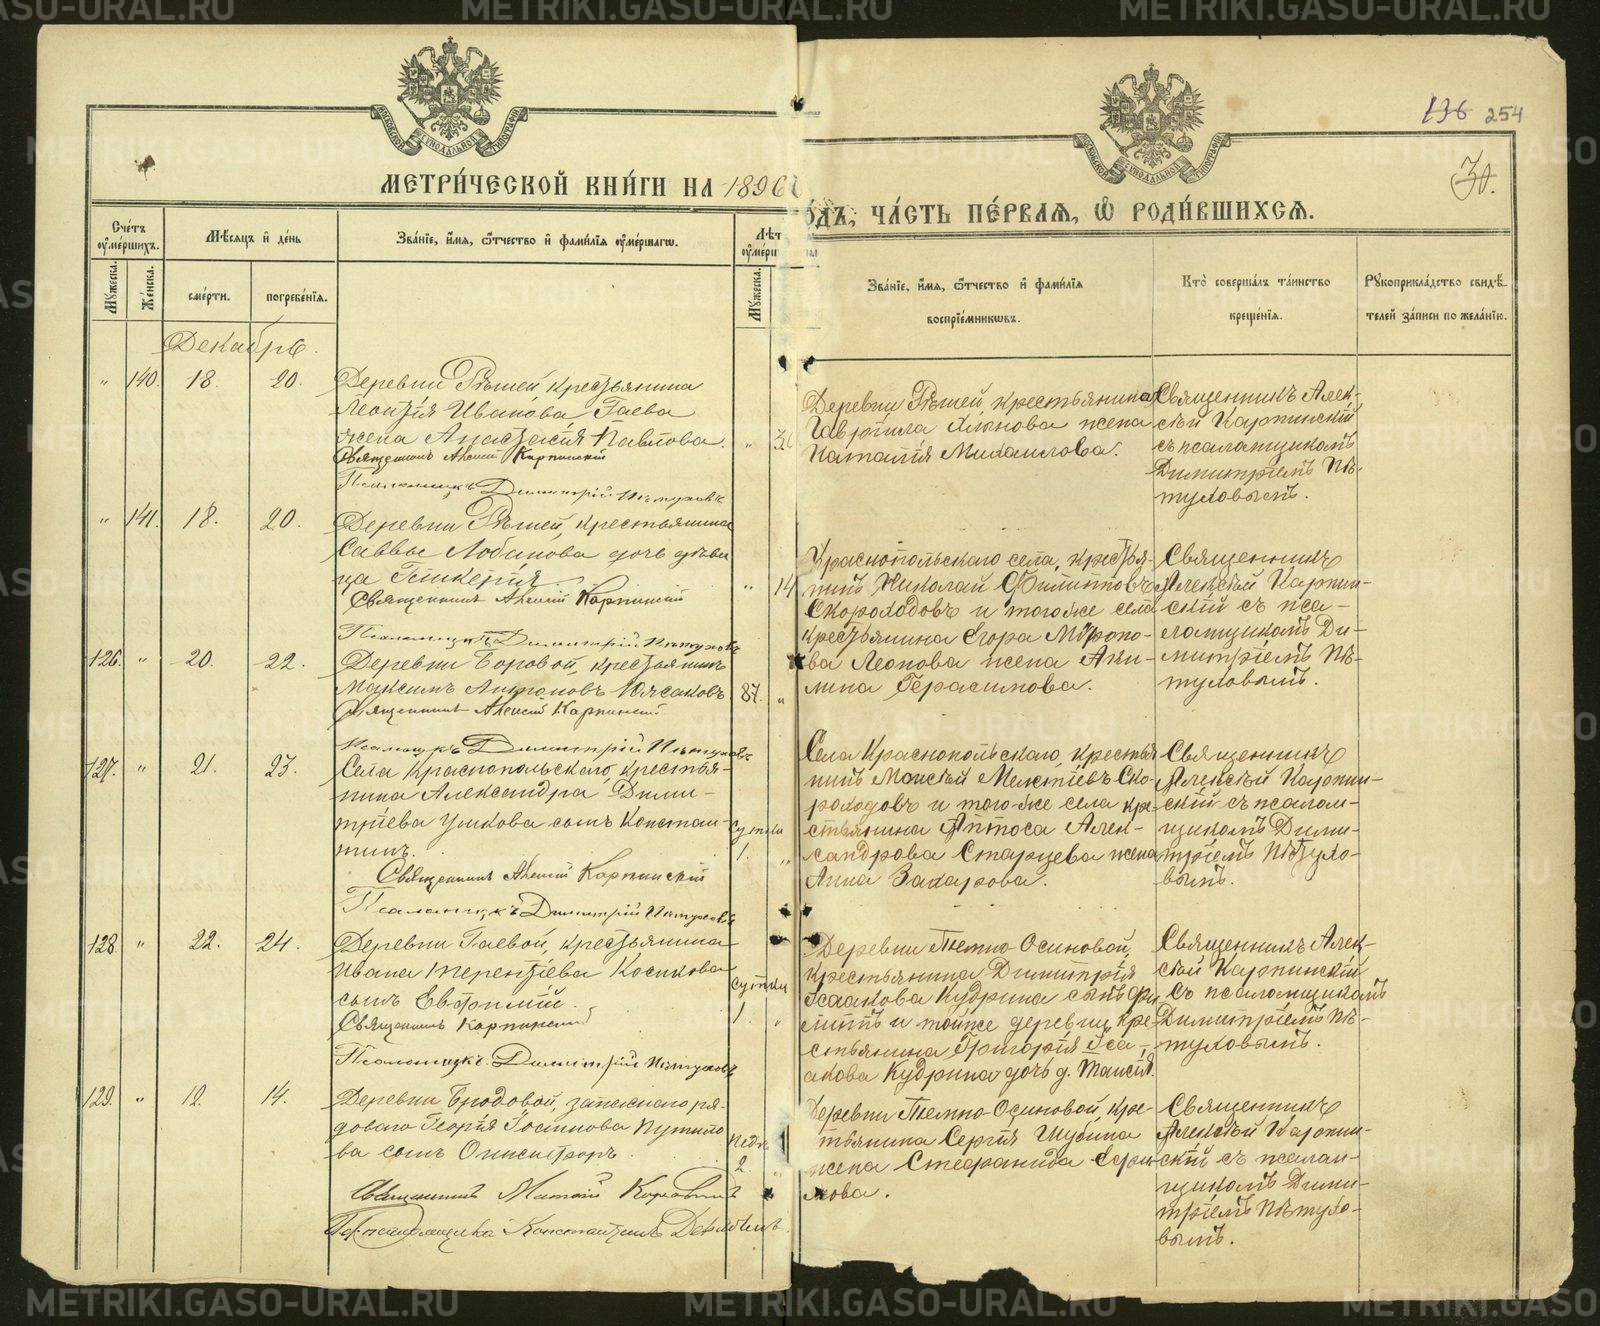 МЕТРИ́ЧЕСКОЙ КНИ́ГИ НА 1896
Сче́тъ ᲂу҆ме́ршихъ.
Мѣ́сяцъ и҆ де́нь
Зва́нїе, и҆́мя, ѻ҆́тчество и҆ фами́лїя ᲂу҆ме́ршагѡ.
Мꙋжеска.
Же́нска.
сме́рти.
погребе́нїя.
Мꙋжеска.
Декабрь.
" 140. 18. 20.
Деревни Рѣшей, крестьянина
Леонтія Иванова Гаева
жена Анастасія Павлова.
Священникъ Алексій Карпинскій
Псаломщикъ Димитрій Пѣтуховъ
" 141. 18. 20.
Деревни Рѣшей, крестьянина
Саввы Лобанова дочь дѣви
ца Гликерія. " 14
Священникъ Алексій Карпинскій
Псаломщикъ Димитрій Пѣтуховъ
126. " 20. 22.
Деревни Боровой, крестьянинъ
Максимъ Антоновъ 87. "
Священникъ Алексій Карпинскій
Псаломщикъ Димитрій Пѣтуховъ
127. " 21. 23.
Села Краснопольскаго, крестья-
нина Александра Дими-
тріева Ушкова сынъ Констан- Сутки
тинъ. 1. "
Священникъ Алексій Карпинскій
Псаломщикъ Димитрій Пѣтуховъ
128 " 22. 24.
Деревни Гаевой, крестьянина
Ивана Терентіева Косикова
сынъ Евфимій. Сутки 1. "
Священникъ Карпинскій
Псаломщикъ Димитрій Пѣтуховъ
129. " 12. 14.
Деревни Бродовой, запаснаго ря-
доваго Георгія Путило
ва сынъ Онисифоръ. 2. "
Священникъ
псаломщика Константинъ
136 254
30.
ЧА́СТЬ ПЕ́РВАЯ, Ѡ҆ РОДИ́ВШИХСЯ.
Зва́нїе, и҆́мя, ѻ҆́тчество и҆ фами́лїя воспрїе́мникѡвъ.
Кто̀ соверша́лъ та́инство креще́нїя.
Рꙋкоприкла́дство свидѣ́-
телей за́писи по жела́нїю.
Деревни Рѣшей, крестьянина
Гавріила жена
Наталія Михаилова.
Священникъ Алек-
сѣй Карпинскій
съ псаломщикомъ
Димитріемъ Пѣ-
туховымъ.
Краснопольскаго села, крестья-
нинъ Николай Филипповъ
Скороходовъ и того же села
крестьянина Егора Миропо-
ва Леонова жена Аки-
лина Герасимова.
Священникъ
Алексѣй Карпин-
скій съ пса-
ломщикомъ Ди-
митріемъ Пѣ-
туховымъ.
Села Краснопольскаго, крестья
нинъ Моисѣй Мелетіевъ Ско-
роходовъ и того же села кре-
стьянина Алек-
сандрова Старцева жена
Анна Захарова.
Священникъ
Алексѣй Карпин-
скій съ псалом-
щикомъ Дими-
тріемъ Пѣтухо-
вымъ.
Деревни Темно-Осиновой,
крестьянина Димитрія
Исаакова Кудрина сынъ Фи
липпъ и тойже деревни, кре-
стьянина Григорія Иса-
акова Кудрина дочь д. Таисія.
Священникъ Алек-
сѣй Карпинскій
съ псаломщикомъ
Димитріемъ Пѣ-
туховымъ.
Деревни Темно-Осиновой, кре-
стьянина Сергія Шубина
жена Стефанида Ефи-
мова.
Священникъ
Алексѣй Карпин-
скій съ псалом-
щикомъ Дими-
тріемъ Пѣтухо-
вымъ.
METRIKI.GASO-URAL.RU